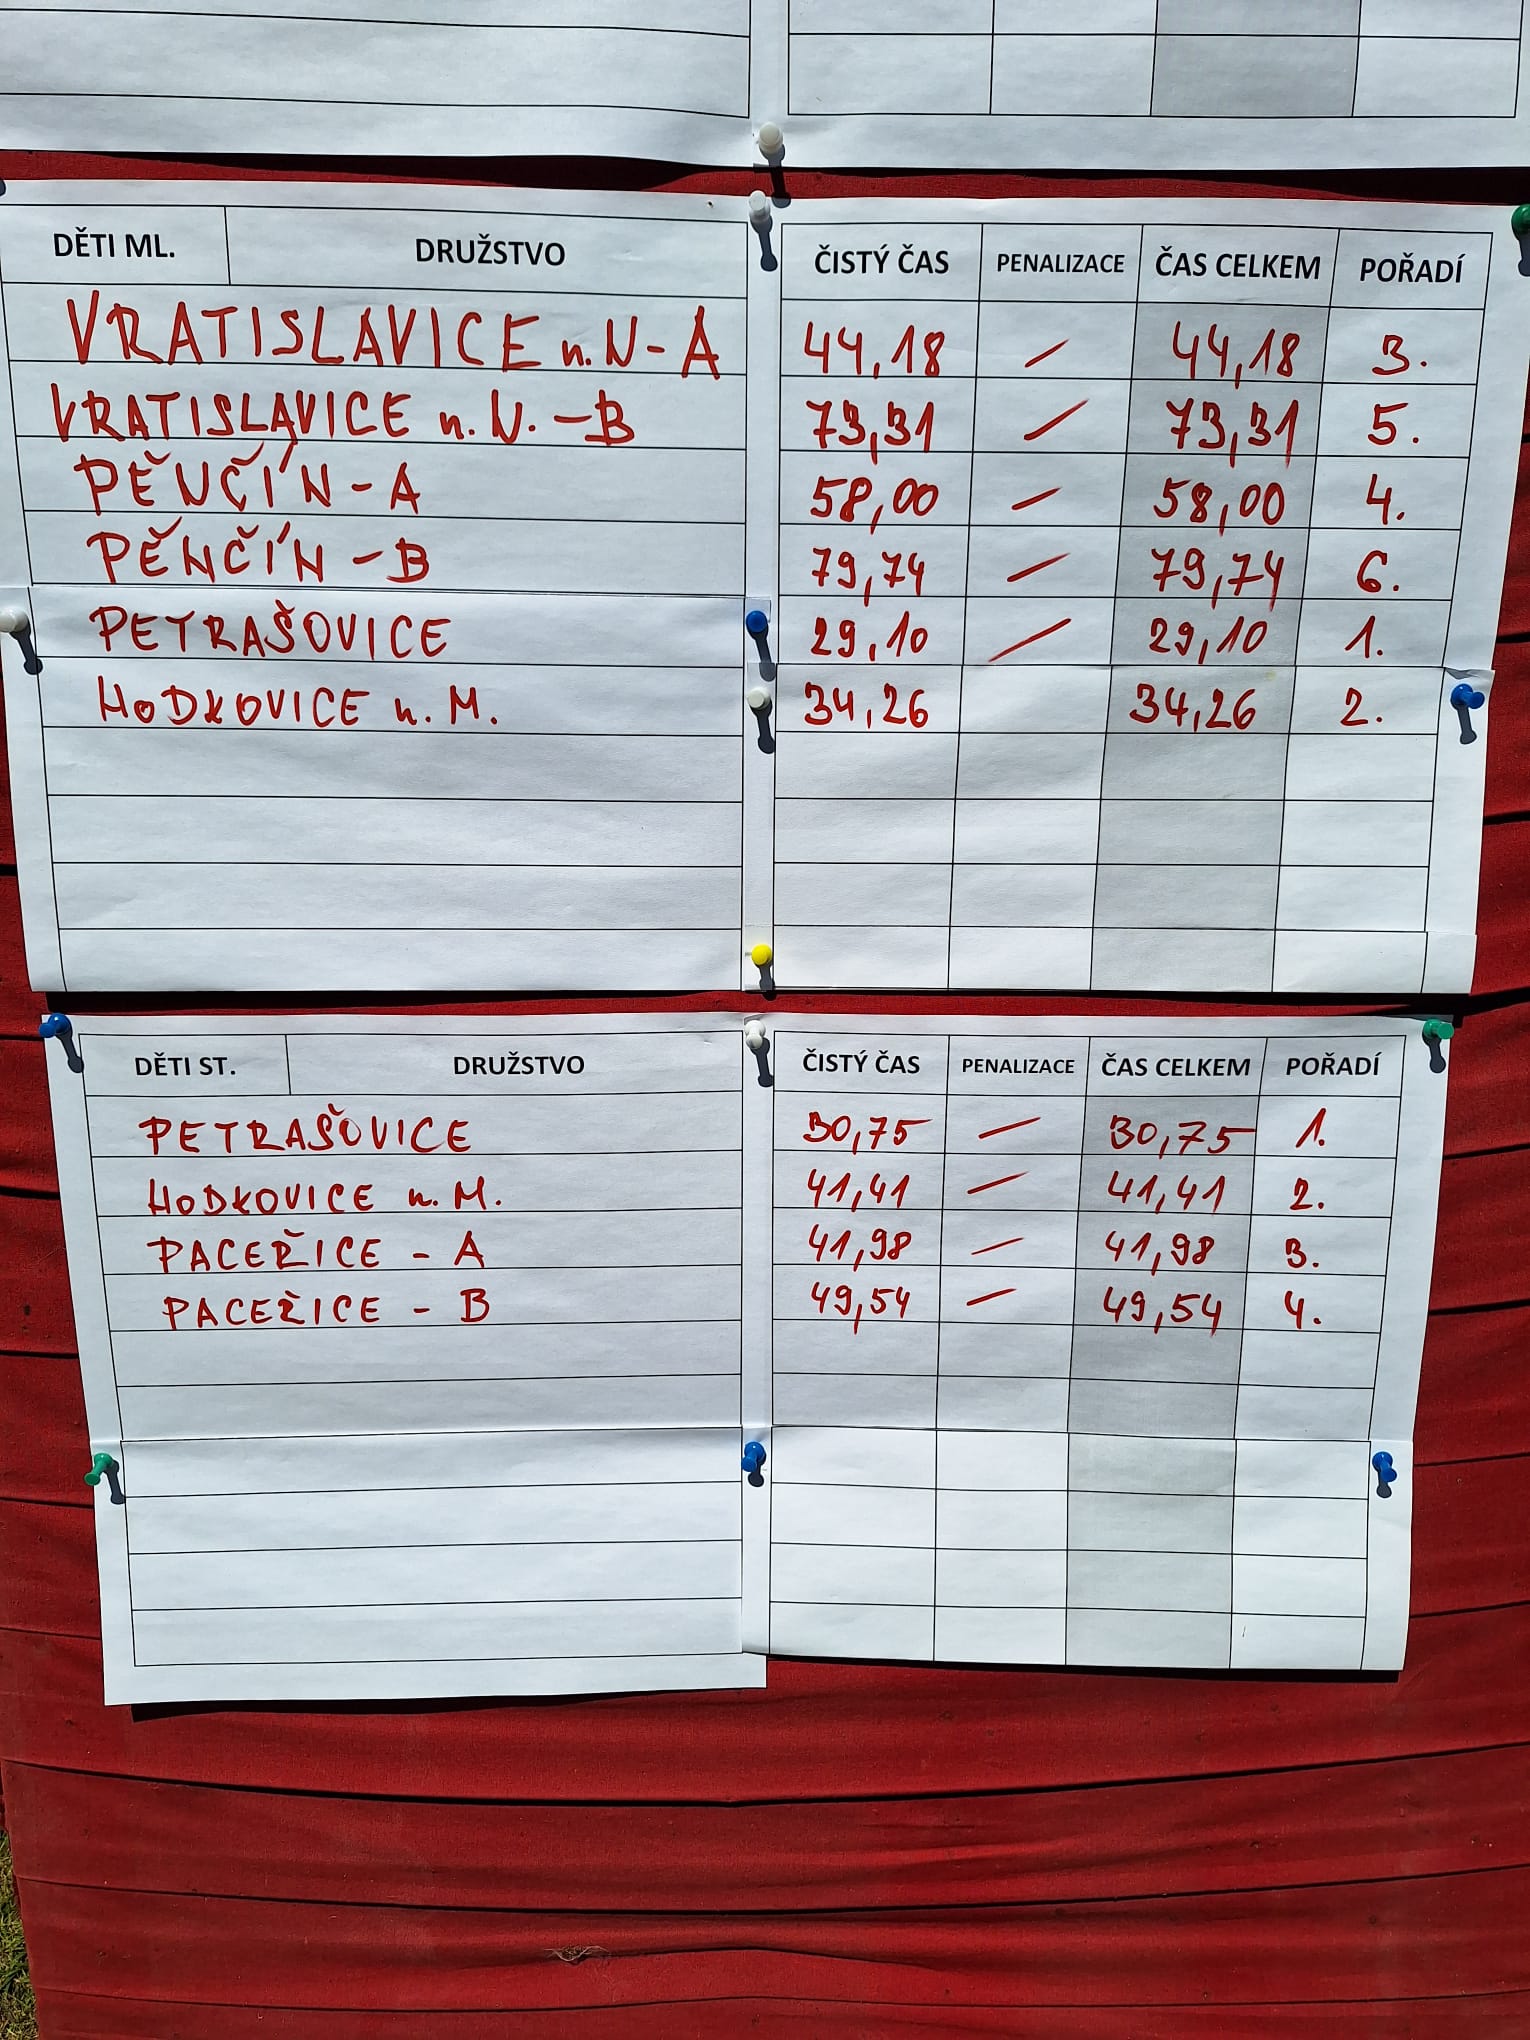 DĚTI ML. DRUŽSTVO ČISTÝ ČAS PENALIZACE ČAS CELKEM POŘADÍ
VRATISLAVICE n. N - A 44,18 / 44,18 3.
VRATISLAVICE n. N. - B 73,31 / 73,31 5.
PĚNČÍN - A 58,00 / 58,00 4.
PĚNČÍN - B 79,74 / 79,74 6.
PETRAŠOVICE 29,10 / 29,10 1.
HODKOVICE n. M. 34,26 34,26 2.
DĚTI ST. DRUŽSTVO ČISTÝ ČAS PENALIZACE ČAS CELKEM POŘADÍ
PETRAŠOVICE 30,75 / 30,75 1.
HODKOVICE n. M. 41,41 / 41,41 2.
PACEŘICE - A 41,98 / 41,98 3.
PACEŘICE - B 49,54 / 49,54 4.